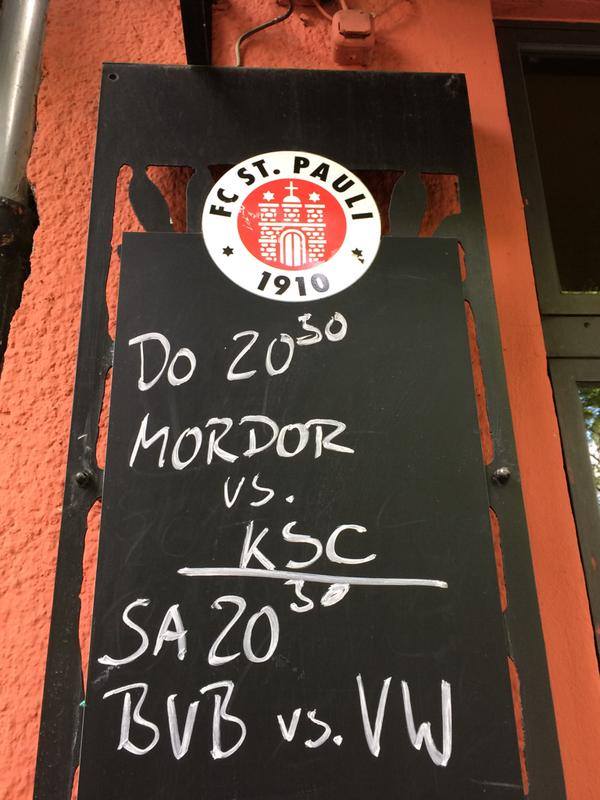 FC ST. PAULI
1910
Do 20³⁰
MORDOR
vs.
KSC
SA 20³⁰
BVB vs. VW